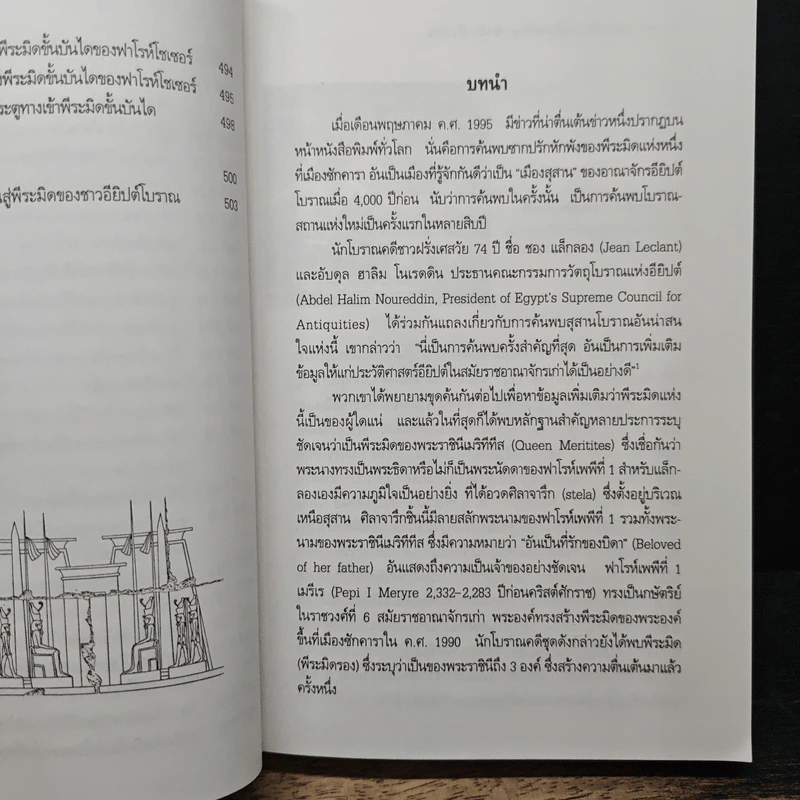 พีระมิดขั้นบันไดของฟาโรห์โซเซอร์ 494
พีระมิดขั้นบันไดของฟาโรห์โซเซอร์ 495
ระตูทางเข้าพีระมิดขั้นบันได 498
500
สู่พีระมิดของชาวอียิปต์โบราณ 503
บทนำ
เมื่อเดือนพฤษภาคม ค.ศ. 1995 มีข่าวที่น่าตื่นเต้นข่าวหนึ่งปรากฏบน
หน้าหนังสือพิมพ์ทั่วโลก นั่นคือการค้นพบซากปรักหักพังของพีระมิดแห่งหนึ่ง
ที่เมืองซักคารา อันเป็นเมืองที่รู้จักกันดีว่าเป็น "เมืองสุสาน" ของอาณาจักรอียิปต์
โบราณเมื่อ 4,000 ปีก่อน นับว่าการค้นพบในครั้งนั้น เป็นการค้นพบโบราณ-
สถานแห่งใหม่เป็นครั้งแรกในหลายสิบปี
นักโบราณคดีชาวฝรั่งเศสวัย 74 ปี ชื่อ ชอง แล็กลอง (Jean Leclant)
และอับดุล ฮาลิม โนเรดดิน ประธานคณะกรรมการวัตถุโบราณแห่งอียิปต์
(Abdel Halim Noureddin, President of Egypt's Supreme Council for
Antiquities) ได้ร่วมกันแถลงเกี่ยวกับการค้นพบสุสานโบราณอันน่าสน
ใจแห่งนี้ เขากล่าวว่า "นี่เป็นการค้นพบครั้งสำคัญที่สุด อันเป็นการเพิ่มเติม
ข้อมูลให้แก่ประวัติศาสตร์อียิปต์ในสมัยราชอาณาจักรเก่าได้เป็นอย่างดี"1
พวกเขาได้พยายามขุดค้นกันต่อไปเพื่อหาข้อมูลเพิ่มเติมว่าพีระมิดแห่ง
นี้เป็นของผู้ใดแน่ และแล้วในที่สุดก็ได้พบหลักฐานสำคัญหลายประการระบุ
ชัดเจนว่าเป็นพีระมิดของพระราชินีเมริทีทีส (Queen Meritites) ซึ่งเชื่อกันว่า
พระนางทรงเป็นพระธิดาหรือไม่ก็เป็นพระนัดดาของฟาโรห์เพพีที่ 1 สำหรับแล็ก-
ลองเองมีความภูมิใจเป็นอย่างยิ่ง ที่ได้อวดศิลาจารึก (stela) ซึ่งตั้งอยู่บริเวณ
เหนือสุสาน ศิลาจารึกชิ้นนี้มีลายสลักพระนามของฟาโรห์เพพีที่ 1 รวมทั้งพระ-
นามของพระราชินีเมริทีทีส ซึ่งมีความหมายว่า "อันเป็นที่รักของบิดา" (Beloved
of her father) อันแสดงถึงความเป็นเจ้าของอย่างชัดเจน ฟาโรห์เพพีที่ 1
เมรีเร (Pepi I Meryre 2,332-2,283 ปีก่อนคริสต์ศักราช) ทรงเป็นกษัตริย์
ในราชวงศ์ที่ 6 สมัยราชอาณาจักรเก่า พระองค์ทรงสร้างพีระมิดของพระองค์
ขึ้นที่เมืองซักคาราใน ค.ศ. 1990 นักโบราณคดีชุดดังกล่าวยังได้พบพีระมิด
(พีระมิดรอง) ซึ่งระบุว่าเป็นของพระราชินีถึง 3 องค์ ซึ่งสร้างความตื่นเต้นมาแล้ว
ครั้งหนึ่ง